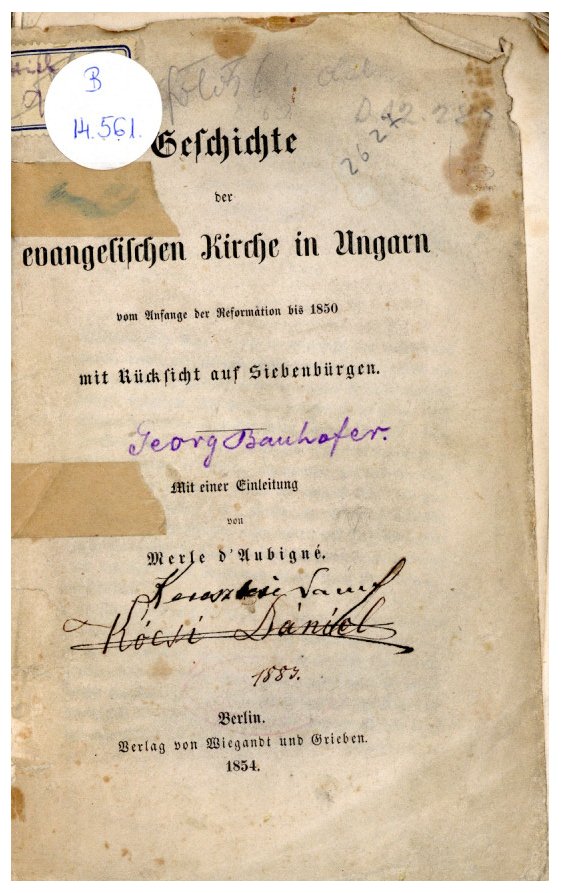 B
14.561.
2624
D 12.283
Geschichte
der
evangelischen Kirche in Ungarn
vom Anfange der Reformation bis 1850
mit Rücksicht auf Siebenbürgen.
Georg Bauhofer.
Mit einer Einleitung
von
Merle d'Aubigné.
Kócsi Dániel
1883.
Berlin.
Verlag von Wiegandt und Grieben.
1854.